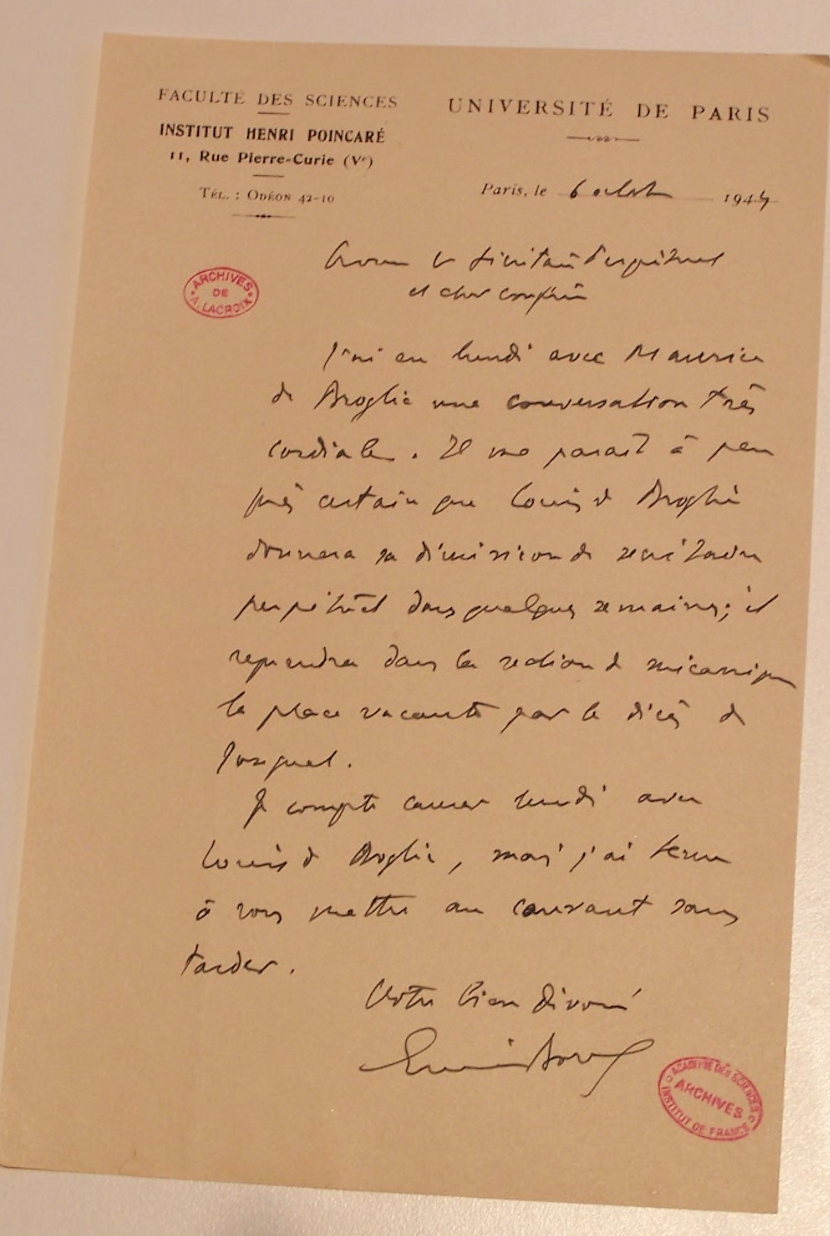 FACULTÉ DES SCIENCES
INSTITUT HENRI POINCARÉ
11, Rue Pierre-Curie (Vᵉ)
TÉL. : ODÉON 42-10
UNIVERSITÉ DE PARIS
Paris, le 6 octobre 1944
ARCHIVES
DE
A. LACROIX
Secrétaire perpétuel
et cher confrère
J'ai eu lundi avec Maurice
de Broglie une conversation très
cordiale. Il me parait à peu
près certain que Louis de Broglie
donnera sa démission de secrétaire
perpétuel dans quelques semaines ; il
reprendra dans la section de mécanique
la place vacante par le décès de
Jouguet.
Je compte causer lundi avec
Louis de Broglie, mais j'ai tenu
à vous mettre au courant sans
tarder.
Votre bien dévoué
Emile Borel
ACADÉMIE DES SCIENCES
ARCHIVES
INSTITUT DE FRANCE